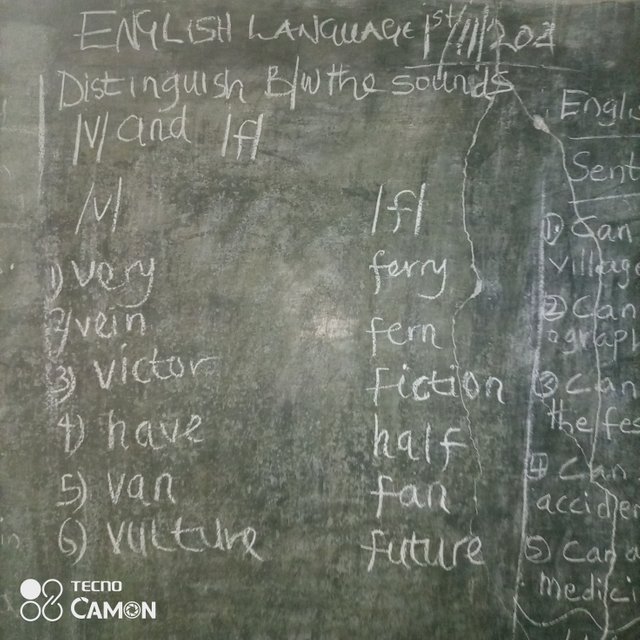 ENGLISH LANGUAGE 1st/11/202
Distinguish B/w the sounds
/v/ and /f/
/v/ /f/
1) very ferry
2) vein fern
3) victor fiction
4) have half
5) van fan
6) vulture future
Engli
Sent
① Can
villag
② Can
agrapl
③ Can
the fes
④ Can
accider
⑤ Can a
Medici
TECNO
CAMON